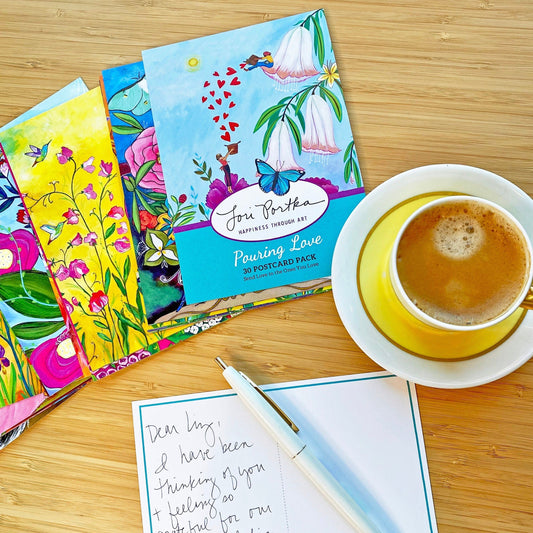 Lori Portka
HAPPINESS THROUGH ART
Pouring Love
30 POSTCARD PACK
Send Love to the Ones You Love
Dear Liz,
I have been
thinking of you
+ feeling so
grateful for our